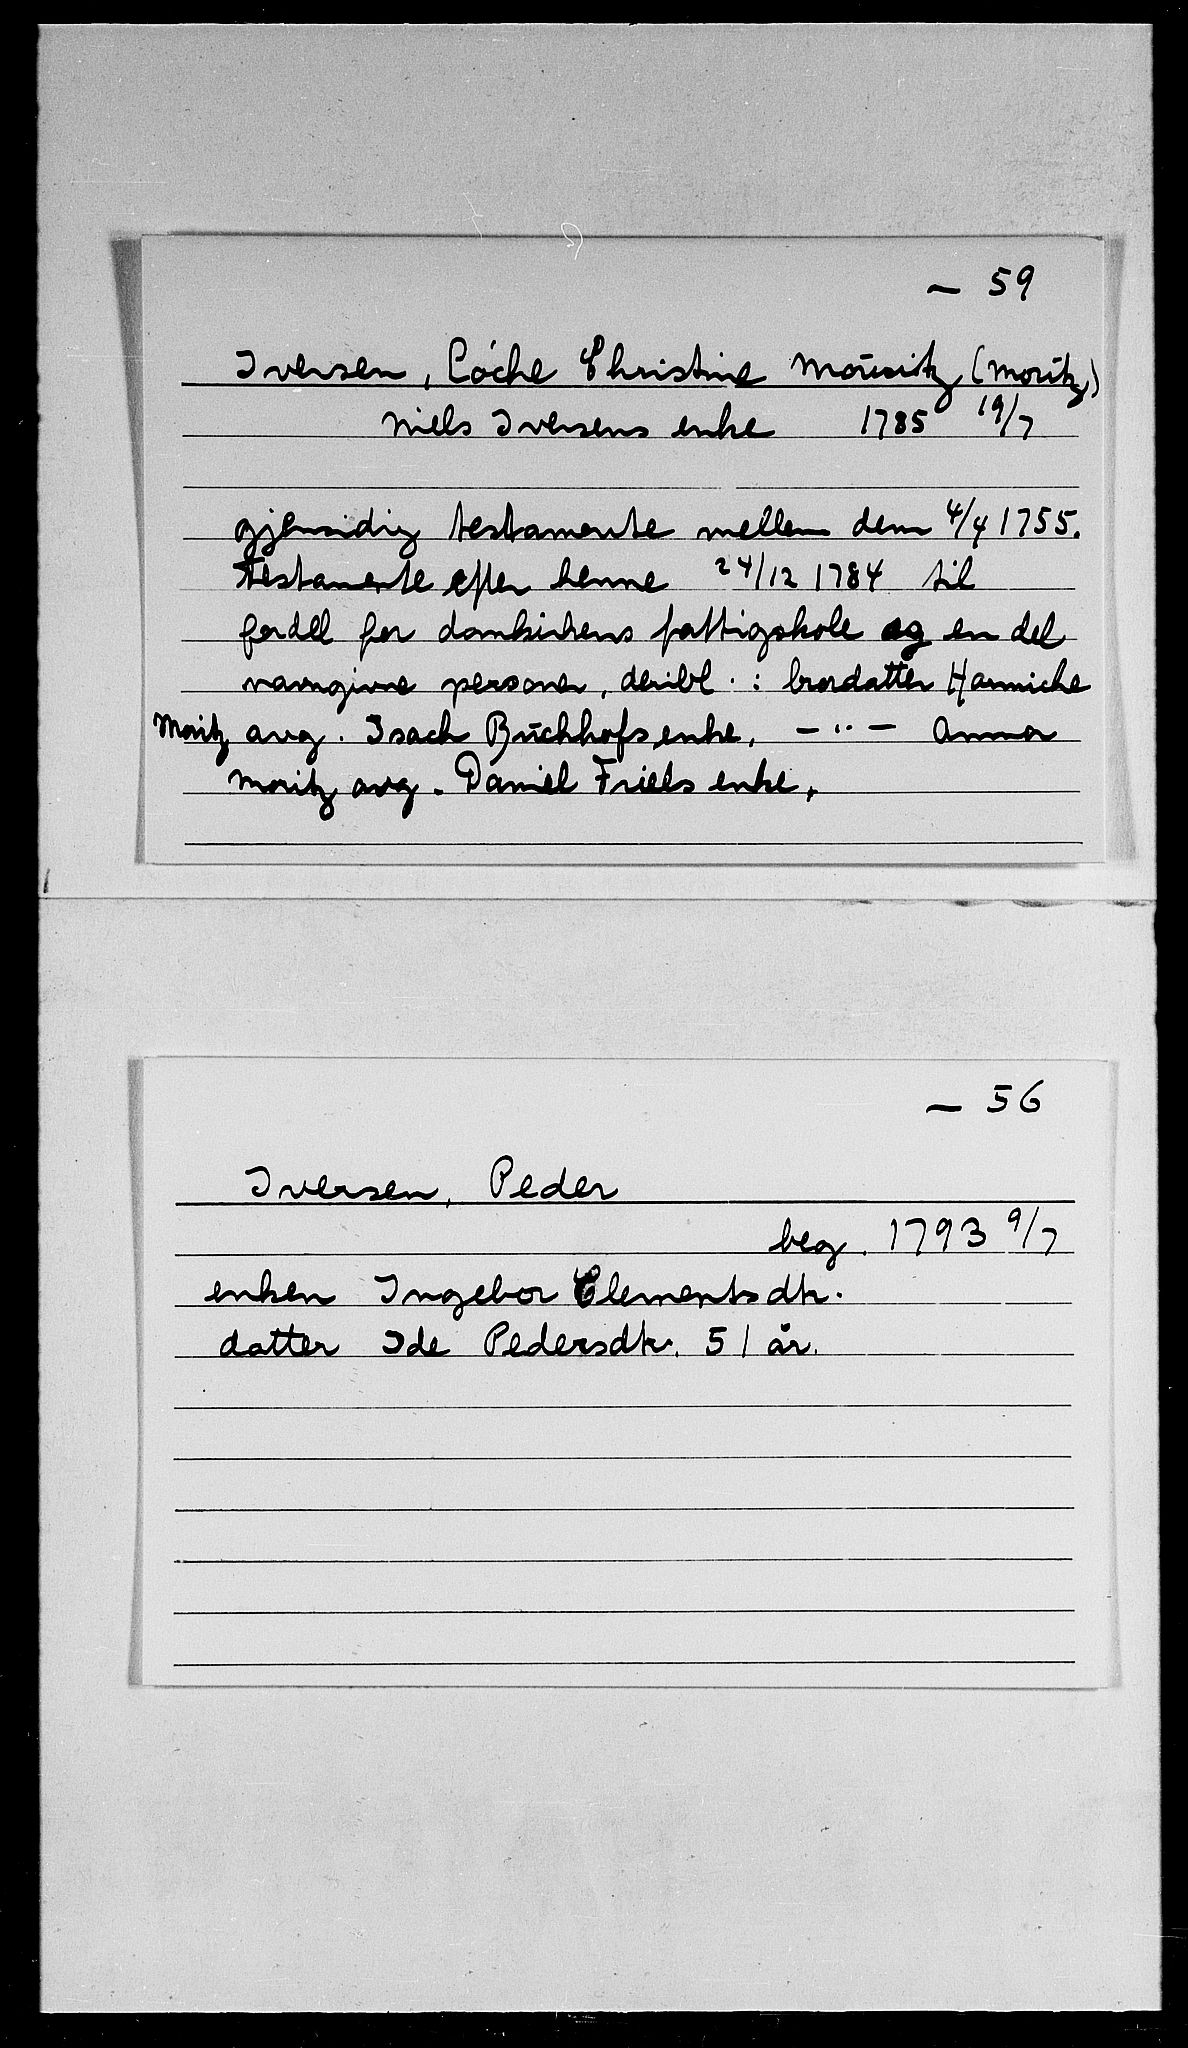 — 59
Iversen, Cóche Christine Mouritz (Moritz)
Niels Iversens enke 1785 19/7
gjensidig testamente mellem dem 4/4 1755.
Testamente efter henne 24/12 1784 til
fordel for domkirkens fattigskole og en del
navngivne personer, deribl.: brordatter Hanniche
Moritz avg. Isach Buchhofs enke, — " — Anna
Moritz avg. Daniel Friels enke.
— 56
Iversen, Peder
beg. 1793 9/7
enken Ingebor Clementsdtr.
datter Ide Pedersdtr. 51 år.